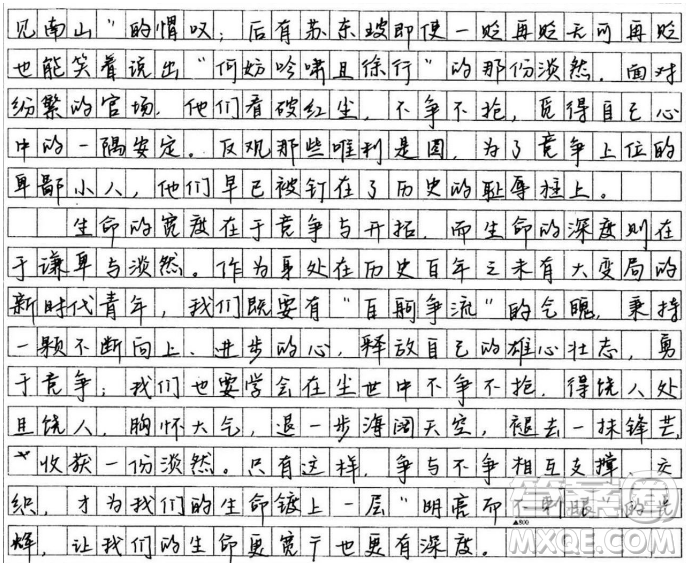 见南山"的慨叹；后有苏东坡即使一贬再贬无可再贬
也能笑着说出"何妨吟啸且徐行"的那份淡然。面对
纷繁的官场，他们看破红尘，不争不抢，觅得自己心
中的一隅安定。反观那些唯利是图，为了竞争上位的
卑鄙小人，他们早已被钉在了历史的耻辱柱上。
生命的宽度在于竞争与开拓，而生命的深度则在
于谦卑与淡然。作为身处在历史百年之未有大变局的
新时代青年，我们既要有"百舸争流"的气魄，秉持
一颗不断向上、进步的心，释放自己的雄心壮志，勇
于竞争；我们也要学会在尘世中不争不抢，得饶人处
且饶人，胸怀大气，退一步海阔天空，褪去一抹锋芒
收获一份淡然。只有这样，争与不争相互支撑、交
织，才为我们的生命镀上一层"明亮而不刺眼"的光
辉，让我们的生命更宽广也更有深度。
▲800
答案圈
MXQE.COM